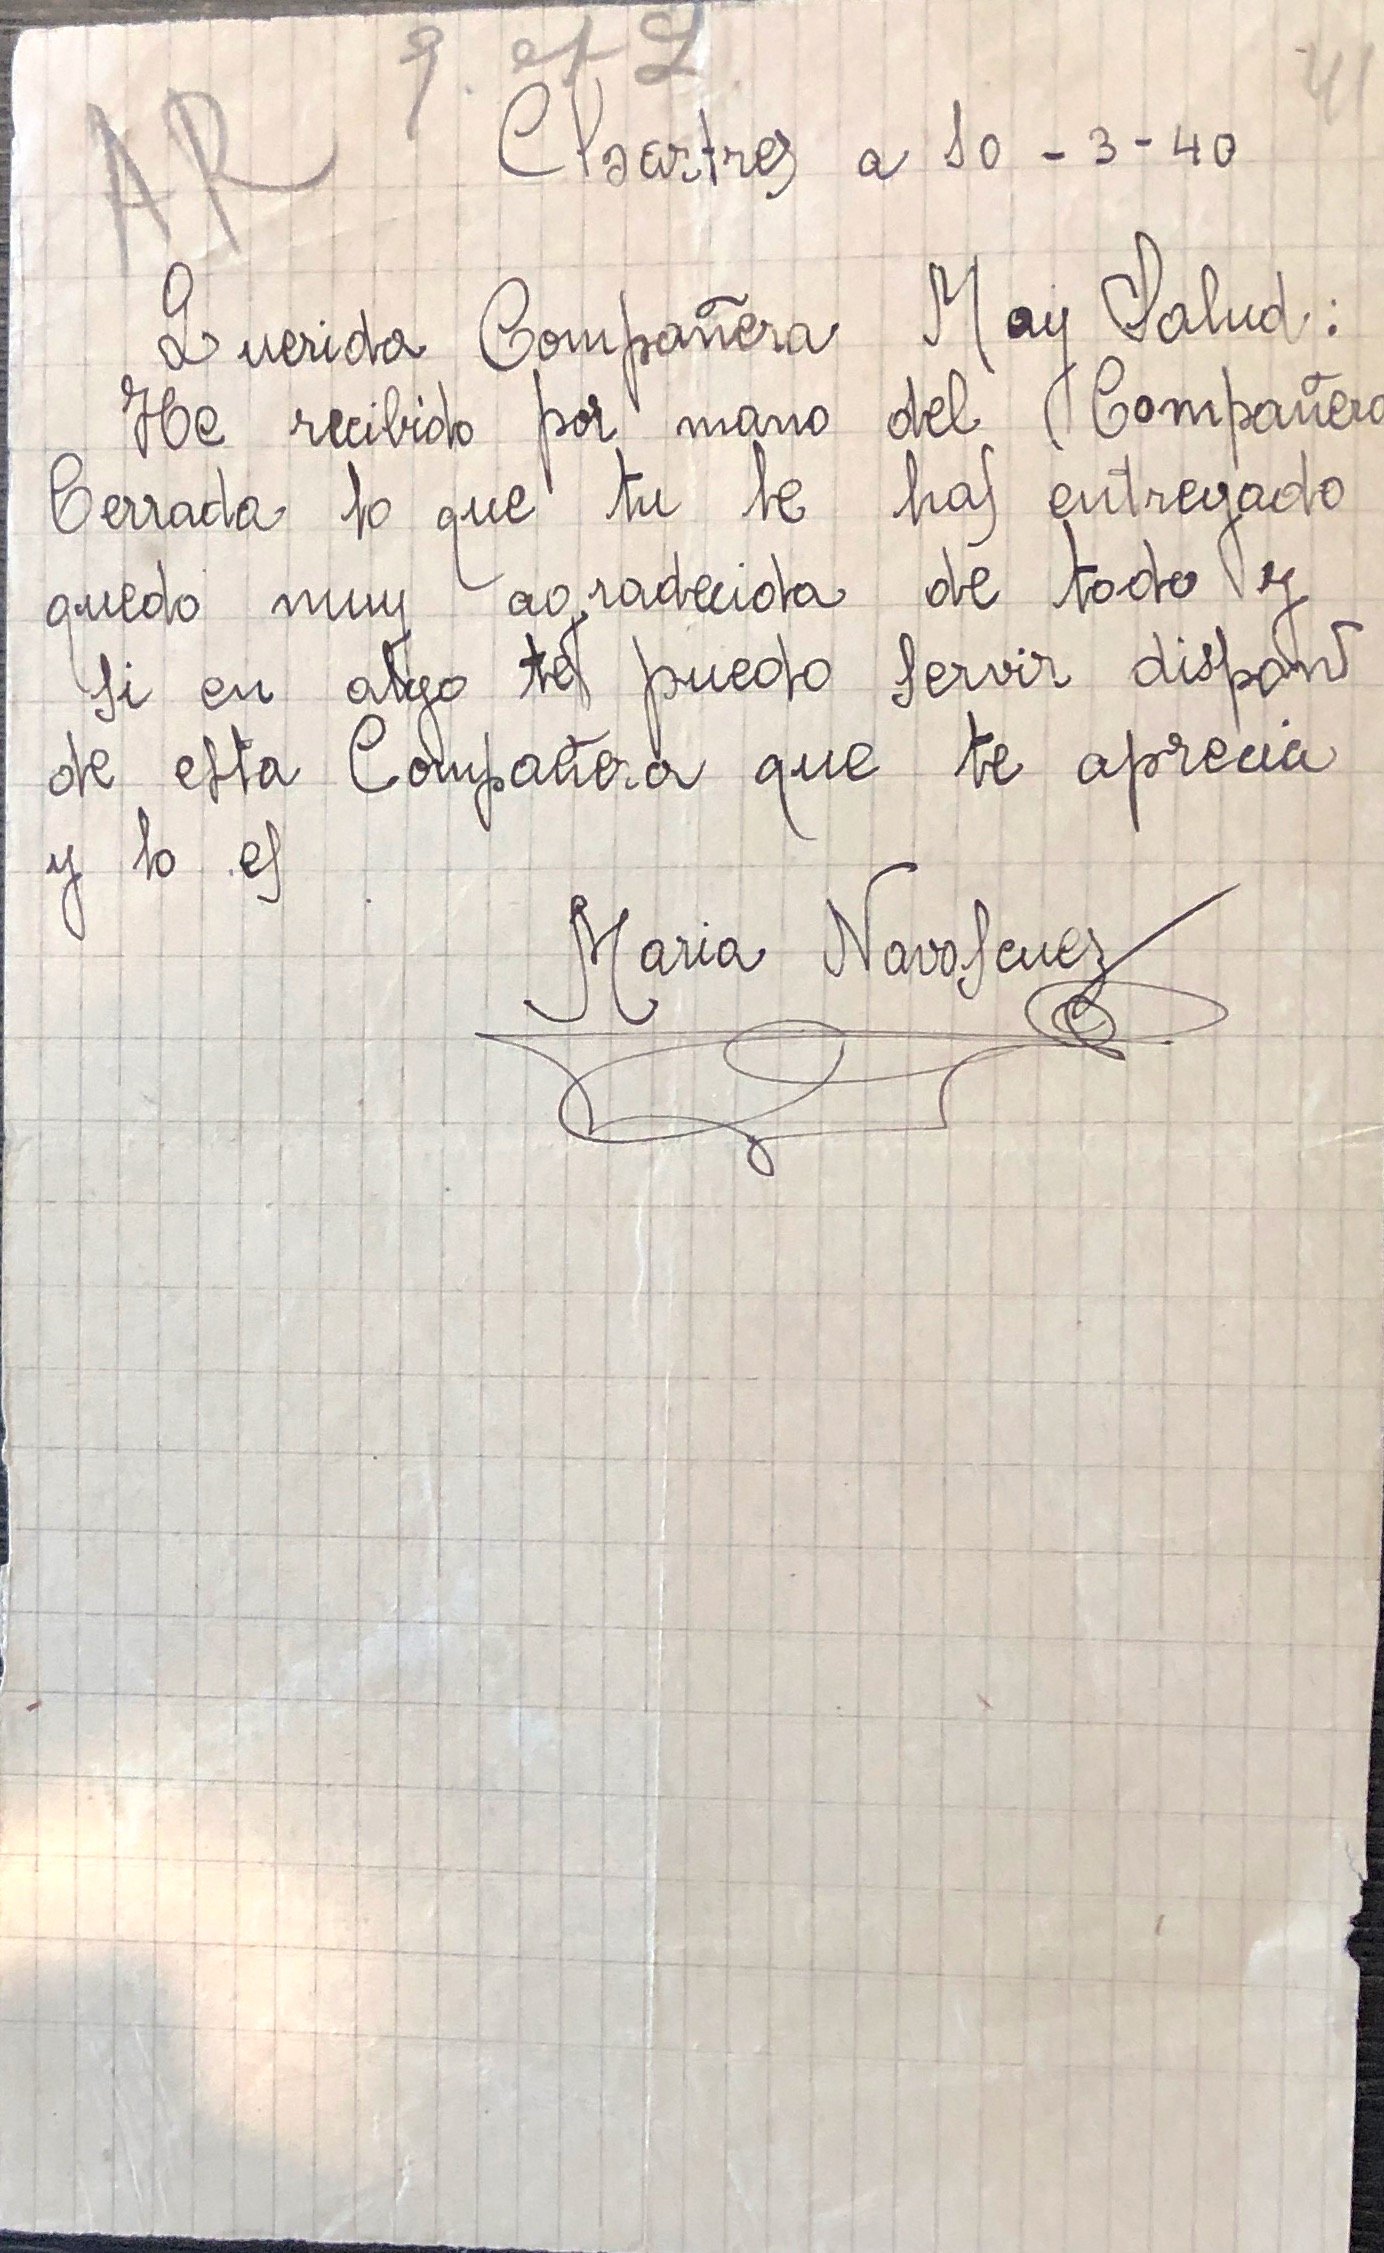 9. et L
AR
41
Chartres a 10 - 3 - 40
Querida Compañera May Salud:
He recibido por mano del Compañero
Cerrada lo que tu le has entregado
quedo muy agradecida de todo y
si en algo te puedo servir dispon
de esta Compañera que te aprecia
y lo es
Maria Navascuez